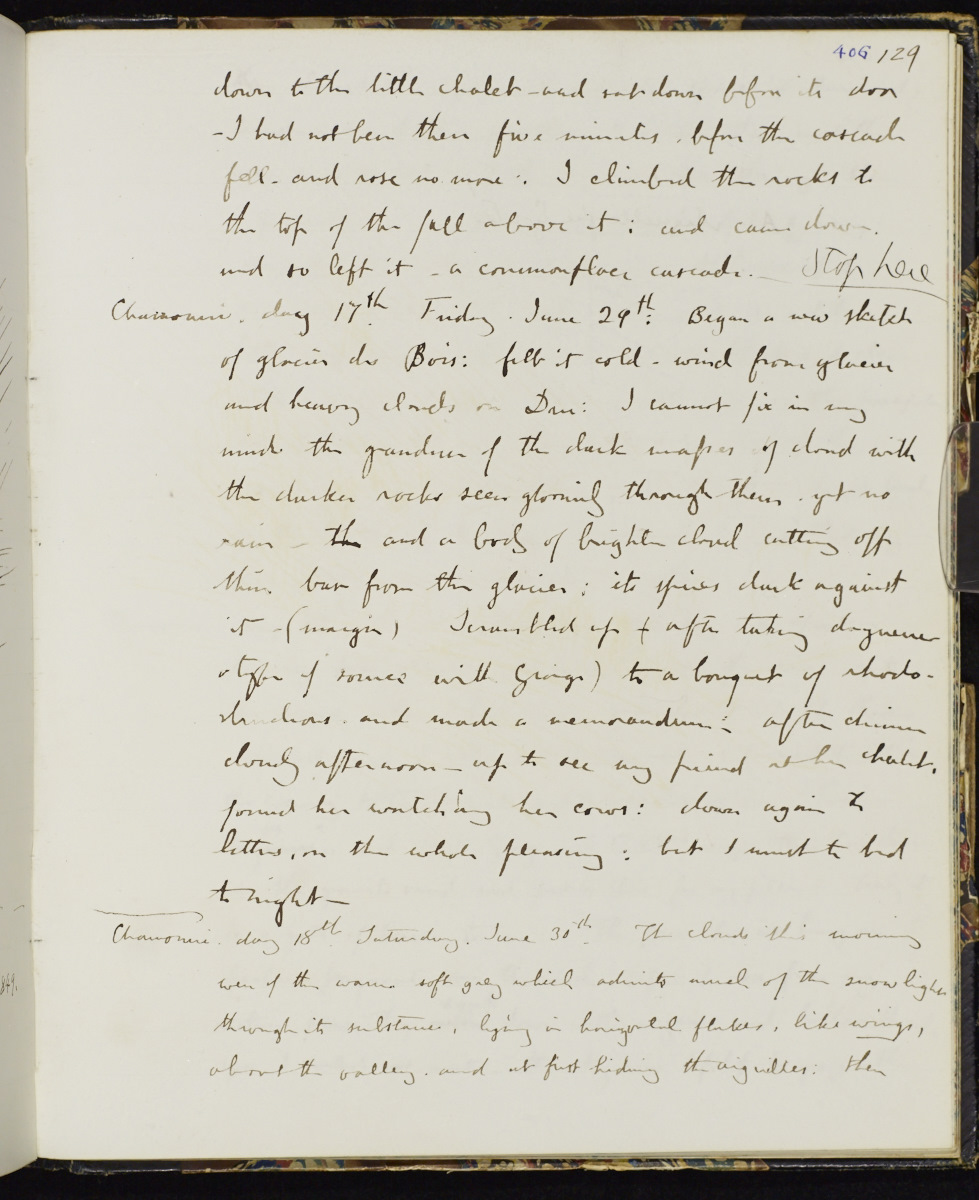 406 129
down to the little chalet - and sat down before its door
- I had not been there five minutes, before the cascade
fell - and rose no more :. I climbed the rocks to
the top of the fall above it : and came down.
and so left it - a commonplace cascade. - Stop here
Chamouni. day 17th. Friday. June 29th: Began a new sketch
of glacier des Bois: felt it cold - wind from glacier
and heavy clouds on Dru: I cannot fix in my
mind the grandeur of the dark masses of cloud with
the darker rocks seen gloomily through them. yet no
rain - the and a body of brighter cloud cutting off
their base from the glacier ; its spires dark against
it - (margin) Scrambled up ( after taking daguerre
otype of source with George) to a bouquet of rhodo-
dendrons. and made a memorandum: after dinner
cloudy afternoon - up to see my friend at her chalet,
found her watching her cows: down again to
letters, on the whole pleasing ; but I must to bed
to night -
Chamouni. day 18th Saturday. June 30th. The clouds this morning
were of the warm soft grey which admits much of the snow light
through its substance, lying in horizontal flakes, like wings,
about the valley. and at first hiding the aiguilles: then
849.